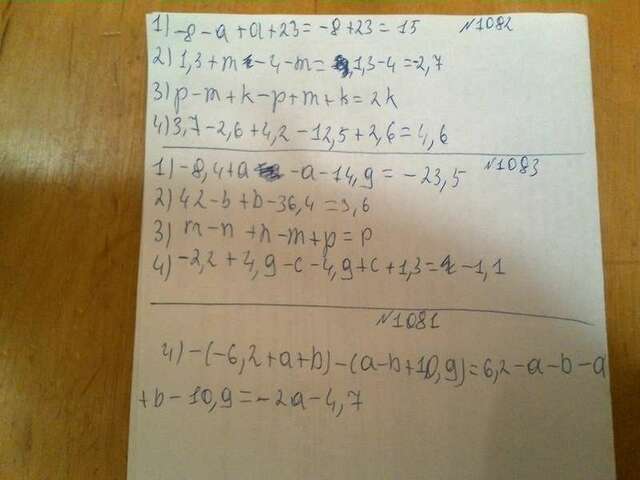 1) -8-a+a+23=-8+23=15 №1082
2) 1,3+m-4-m=1,3-4=-2,7
3) p-m+k-p+m+k=2k
4) 3,7-2,6+4,2-12,5+2,6=4,6
1) -8,4+a-a-14,9=-23,5 №1083
2) 42-b+b-36,4=3,6
3) m-n+n-m+p=p
4) -2,2+4,9-c-4,9+c+1,3=-1,1
№1081
4) -(-6,2+a+b)-(a-b+10,9)=6,2-a-b-a
+b-10,9=-2a-4,7